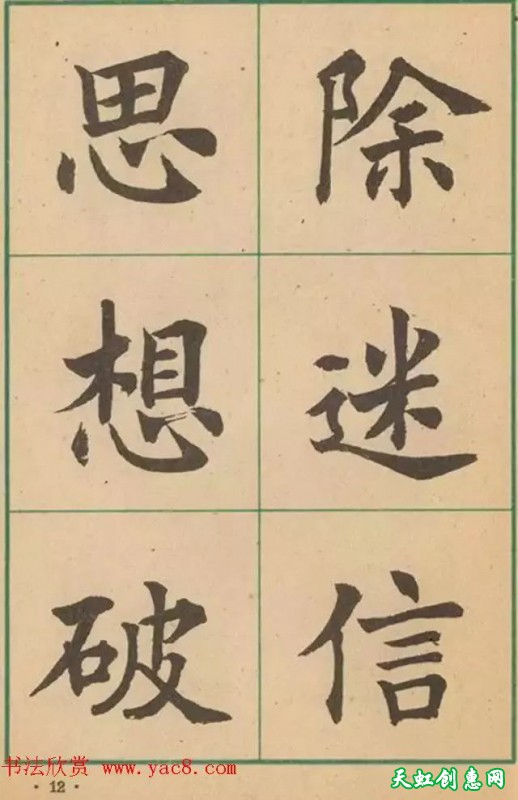 除迷信
思想破
书法欣赏 www.yac8.com
· 12 ·
天虹创惠网